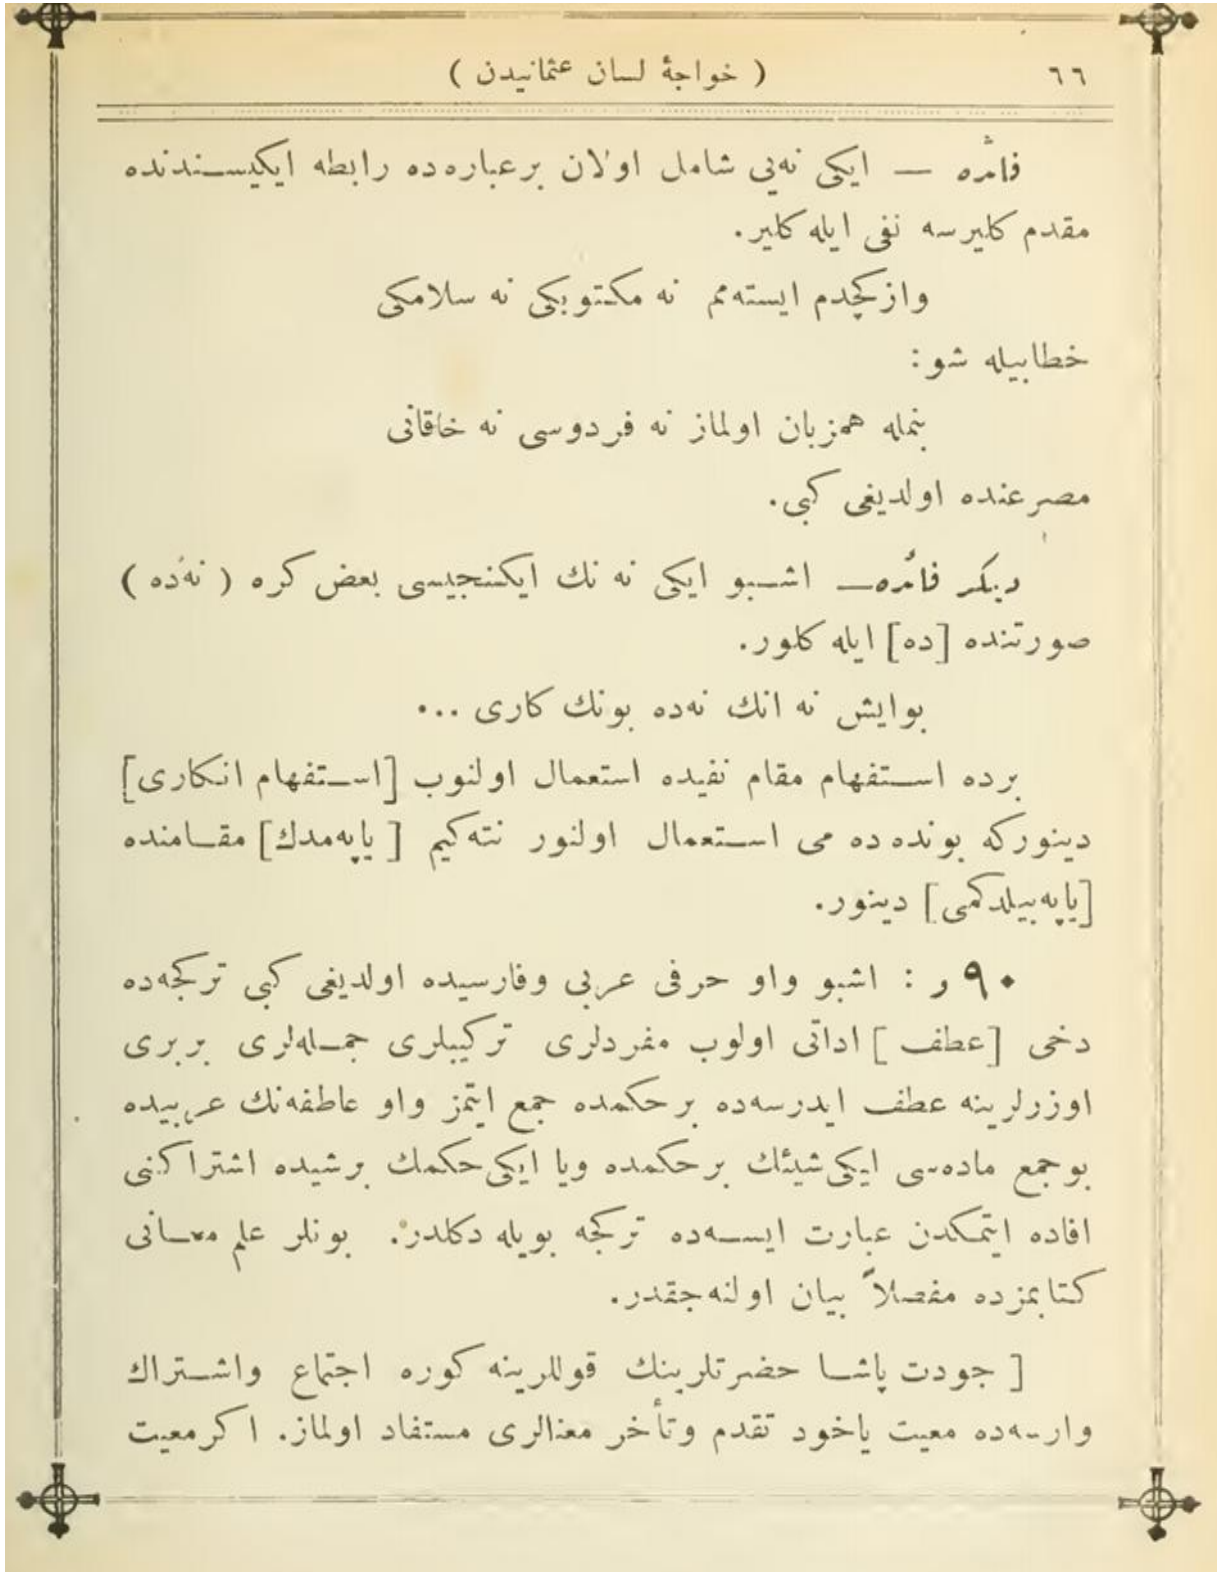 ٦٦
( خواجهٔ لسان عثمانیدن )
فائده — ایکی نه‌یی شامل اولان برعباره‌ده رابطه ایکیسندنده
مقدم کلیرسه نفی ایله کلیر.
وازکچدم ایسته‌مم نه مکتوبکی نه سلامکی
خطابیله شو:
بنمله همزبان اولماز نه فردوسی نه خاقانی
مصرعنده اولدیغی کبی.
دیکر فائده— اشبو ایکی نه نك ایکنجیسی بعض کره ( نه‌ده )
صورتنده [ده] ایله کلور.
بوایش نه انك نه‌ده بونك کاری ...
برده استفهام مقام نفیده استعمال اولنوب [استفهام انکاری]
دینورکه بونده‌ده می استعمال اولنور نته‌کیم [ یاپه‌مدك] مقامنده
[یاپه‌بیلدکمی] دینور.
٩٠ و : اشبو واو حرفی عربی وفارسیده اولدیغی کبی ترکجه‌ده
دخی [عطف ] اداتی اولوب مفردلری ترکیبلری جمله‌لری بربری
اوزرلرینه عطف ایدرسه‌ده برحکمده جمع ایتمز واو عاطفه‌نك عربیده
بوجمع ماده‌سی ایکی شیئك برحکمده ویا ایکی حکمك برشیده اشتراکنی
افاده ایتمکدن عبارت ایسه‌ده ترکجه بویله دکلدر. بونلر علم معانی
کتابمزده مفصلاً بیان اولنه‌جقدر.
[ جودت پاشا حضرتلرینك قوللرینه کوره اجتماع واشتراك
وارسه‌ده معیت یاخود تقدم وتأخر معنالری مستفاد اولماز. اکرمعیت